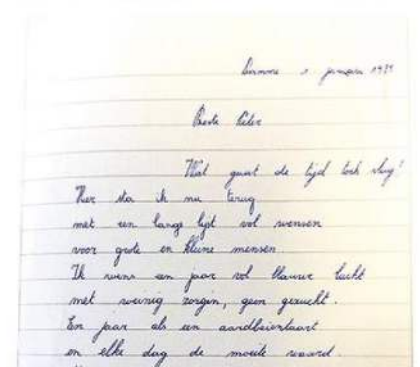 1 januari 19
Beste Peter
Wat gaat de tijd toch vlug!
Hier sta ik nu terug
met een lange lijst vol wensen
voor grote en kleine mensen.
Ik wens een jaar vol blauwe lucht
met weinig zorgen, geen gezucht.
Een jaar als een aardbeientaart
en elke dag de moeite waard.